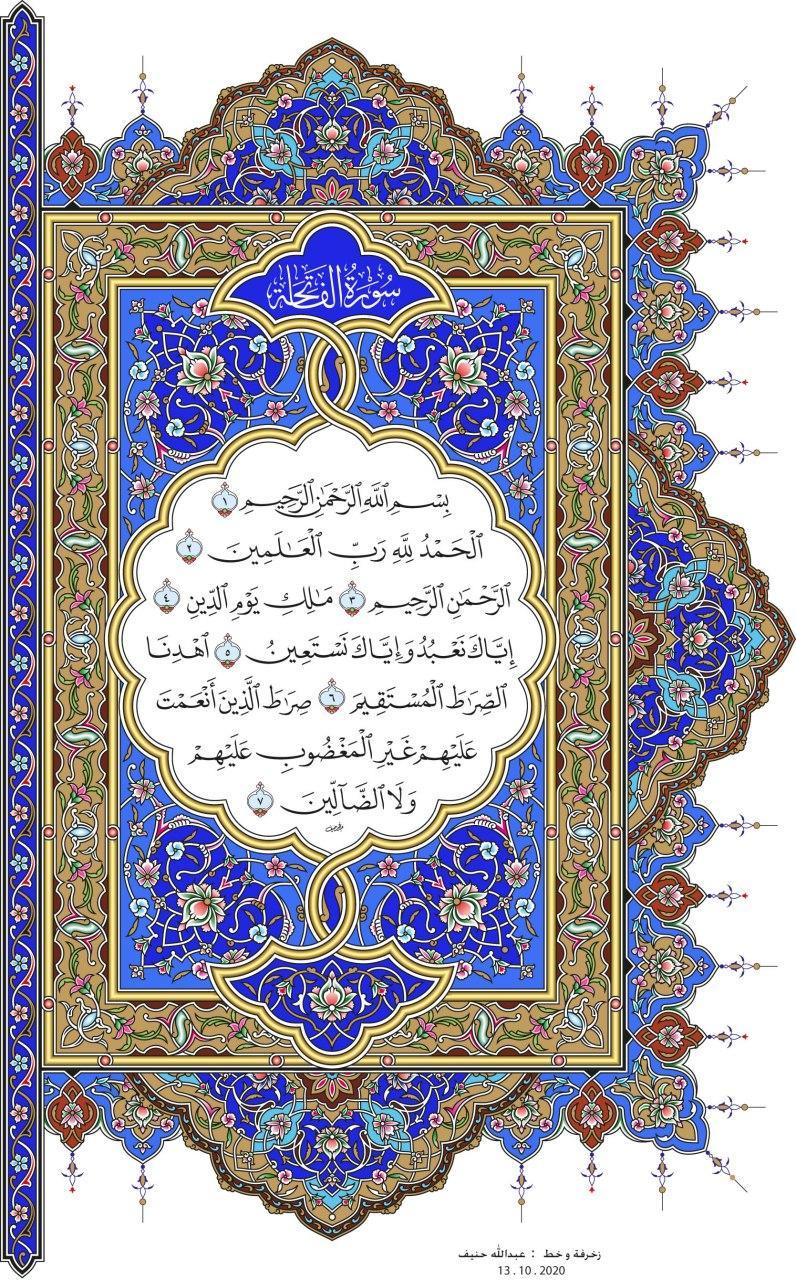 سُورَةُ الفَاتِحَة
بِسْمِ اللَّهِ الرَّحْمَٰنِ الرَّحِيمِ ١
الْحَمْدُ لِلَّهِ رَبِّ الْعَالَمِينَ ٢
الرَّحْمَٰنِ الرَّحِيمِ ٣ مَالِكِ يَوْمِ الدِّينِ ٤
إِيَّاكَ نَعْبُدُ وَإِيَّاكَ نَسْتَعِينُ ٥ اهْدِنَا
الصِّرَاطَ الْمُسْتَقِيمَ ٦ صِرَاطَ الَّذِينَ أَنْعَمْتَ
عَلَيْهِمْ غَيْرِ الْمَغْضُوبِ عَلَيْهِمْ
وَلَا الضَّآلِّينَ ٧
زخرفة و خط : عبدالله حنيف
13 . 10 . 2020